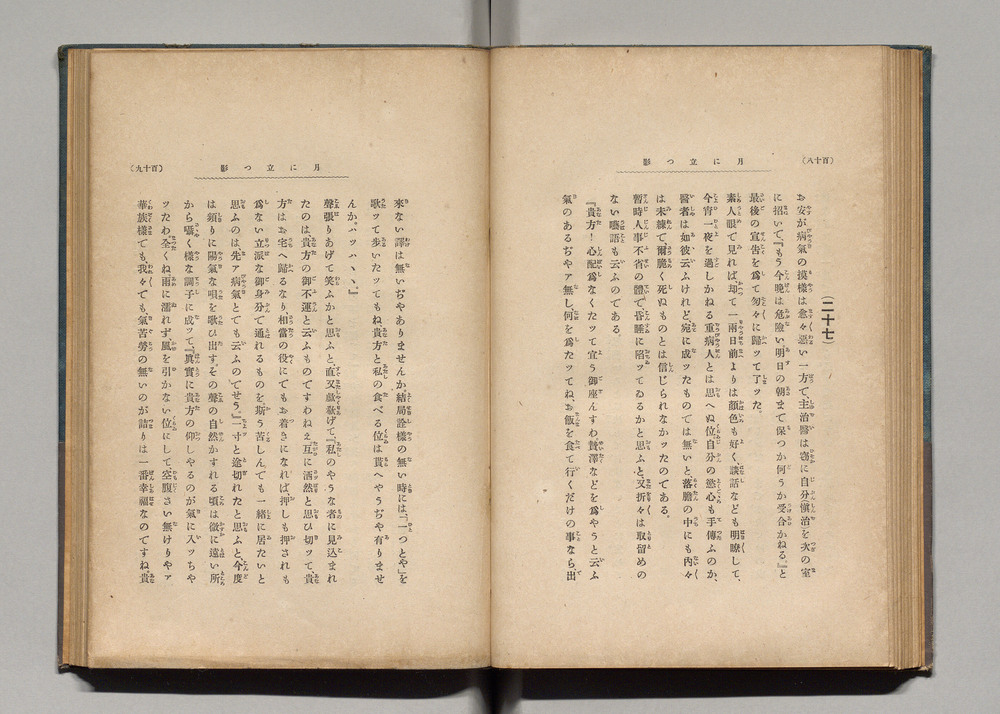 （百十八）
月に立つ影
（二十七）
お安が病氣の摸樣は愈々惡い一方で、主治醫は窃に自分（愼治）を次の室
に招いて、『もう今晩は危險い明日の朝まで保つか何うか受合かねる。』と
最後の宣告を爲て匆々に歸ッて了ッた。
素人眼で見れば却て一兩日前よりは顏色も好く、談話なども明瞭して、
今宵一夜を過しかねる重病人とは思へぬ位、自分の慾心も手傳ふのか、
醫者は如彼云ふけれど、宛に成ッたものでは無いと、落膽の中にも內々
は未練で爾脆く死ぬものとは信じられなかッたのである。
暫時人事不省の體で昏睡に陷ッてゐるかと思ふと、又折々は取留めの
ない囈語も云ふのである。
『貴方！心配爲なくたッて宜う御座んすわ、贅澤などを爲やうと云ふ
氣のあるぢやア無し、何を爲たッてね、お飯を食て行くだけの事なら、出
（百十九）
月に立つ影
來ない譯は無いぢやありませんか、結局詮樣の無い時には、「一つとや」を
歌ッて步いたッてもね、貴方と私の食べる位は貰へやうぢや有りませ
んか。ハッハヽヽ。』
聲張りあげて笑ふかと思ふと、直又歔欷げて、『私のやうな者に見込まれ
たのは、貴方の御不運と云ふものですわねえ、互に酒然と思ひ切ッて、貴
方はお宅へ歸るなり相當の役にでもお着きになれば、押しも押されも
爲ない立派な御身分で通れるものを、斯う苦しんでも一緒に居たいと
思ふのは、先ア病氣とでも云ふのでせう。』一寸と途切れたと思ふと、今度
は頻りに陽氣な唄を歌ひ出す。その聲の自然かすれる頃は、微に遠い所
から囁く樣な調子に成ッて、『眞實に貴方の仰しやるのが氣に入ッちや
ッたわ。全くね、雨に濡れず、風を引かない位にして、空腹さい無けりやア
華族樣でも、我々でも、氣苦勞の無いのが詰りは一番幸福なのですね、貴